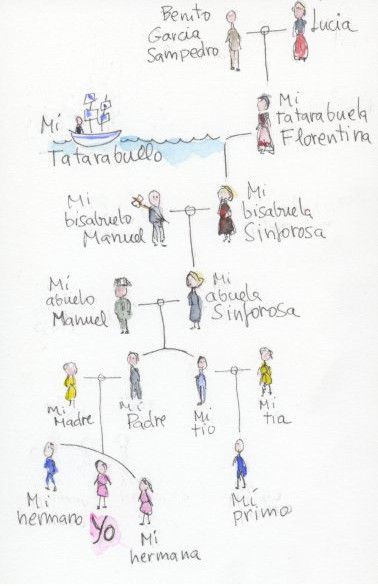 Benito
García
Sampedro
Lucía
Mi
tatarabuela
Florentina
Mi
Tatarabullo
Mi
bisabuelo
Manuel
Mi
bisabuela
Sinforosa
Mi
abuelo
Manuel
Mi
abuela
Sinforosa
Mi
Madre
Mi
Padre
Mi
tio
Mi
tia
Mi
hermano
Yo
Mi
hermana
Mi
primo